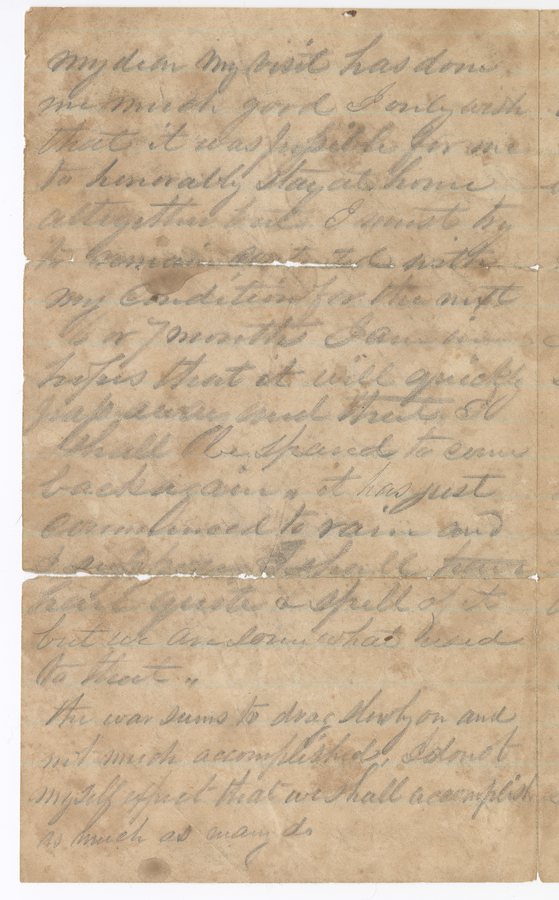 My dear My visit has done
me much good I only wish
that it was possible for me
to honorably stay at home
altogether but I must try
to remain with
my condition for the next
6 or 7 months I am in
hopes that it will quickly
pass away and that I
shall be spared to come
back again „ it has just
commenced to rain and
I suppose I shall have
have quite a spell of it
but we are somewhat used
to that „
the war seems to drag slowly on and
not much accomplished, I do not
myself expect that we shall accomplish
as much as many do